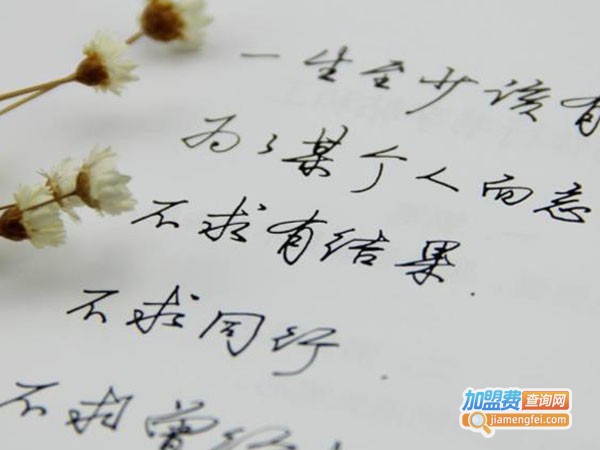 一生至少该有
为了某个人而忘
不求有结果.
不求同行.
不求曾经
加盟费查询网
jiamengfei.com